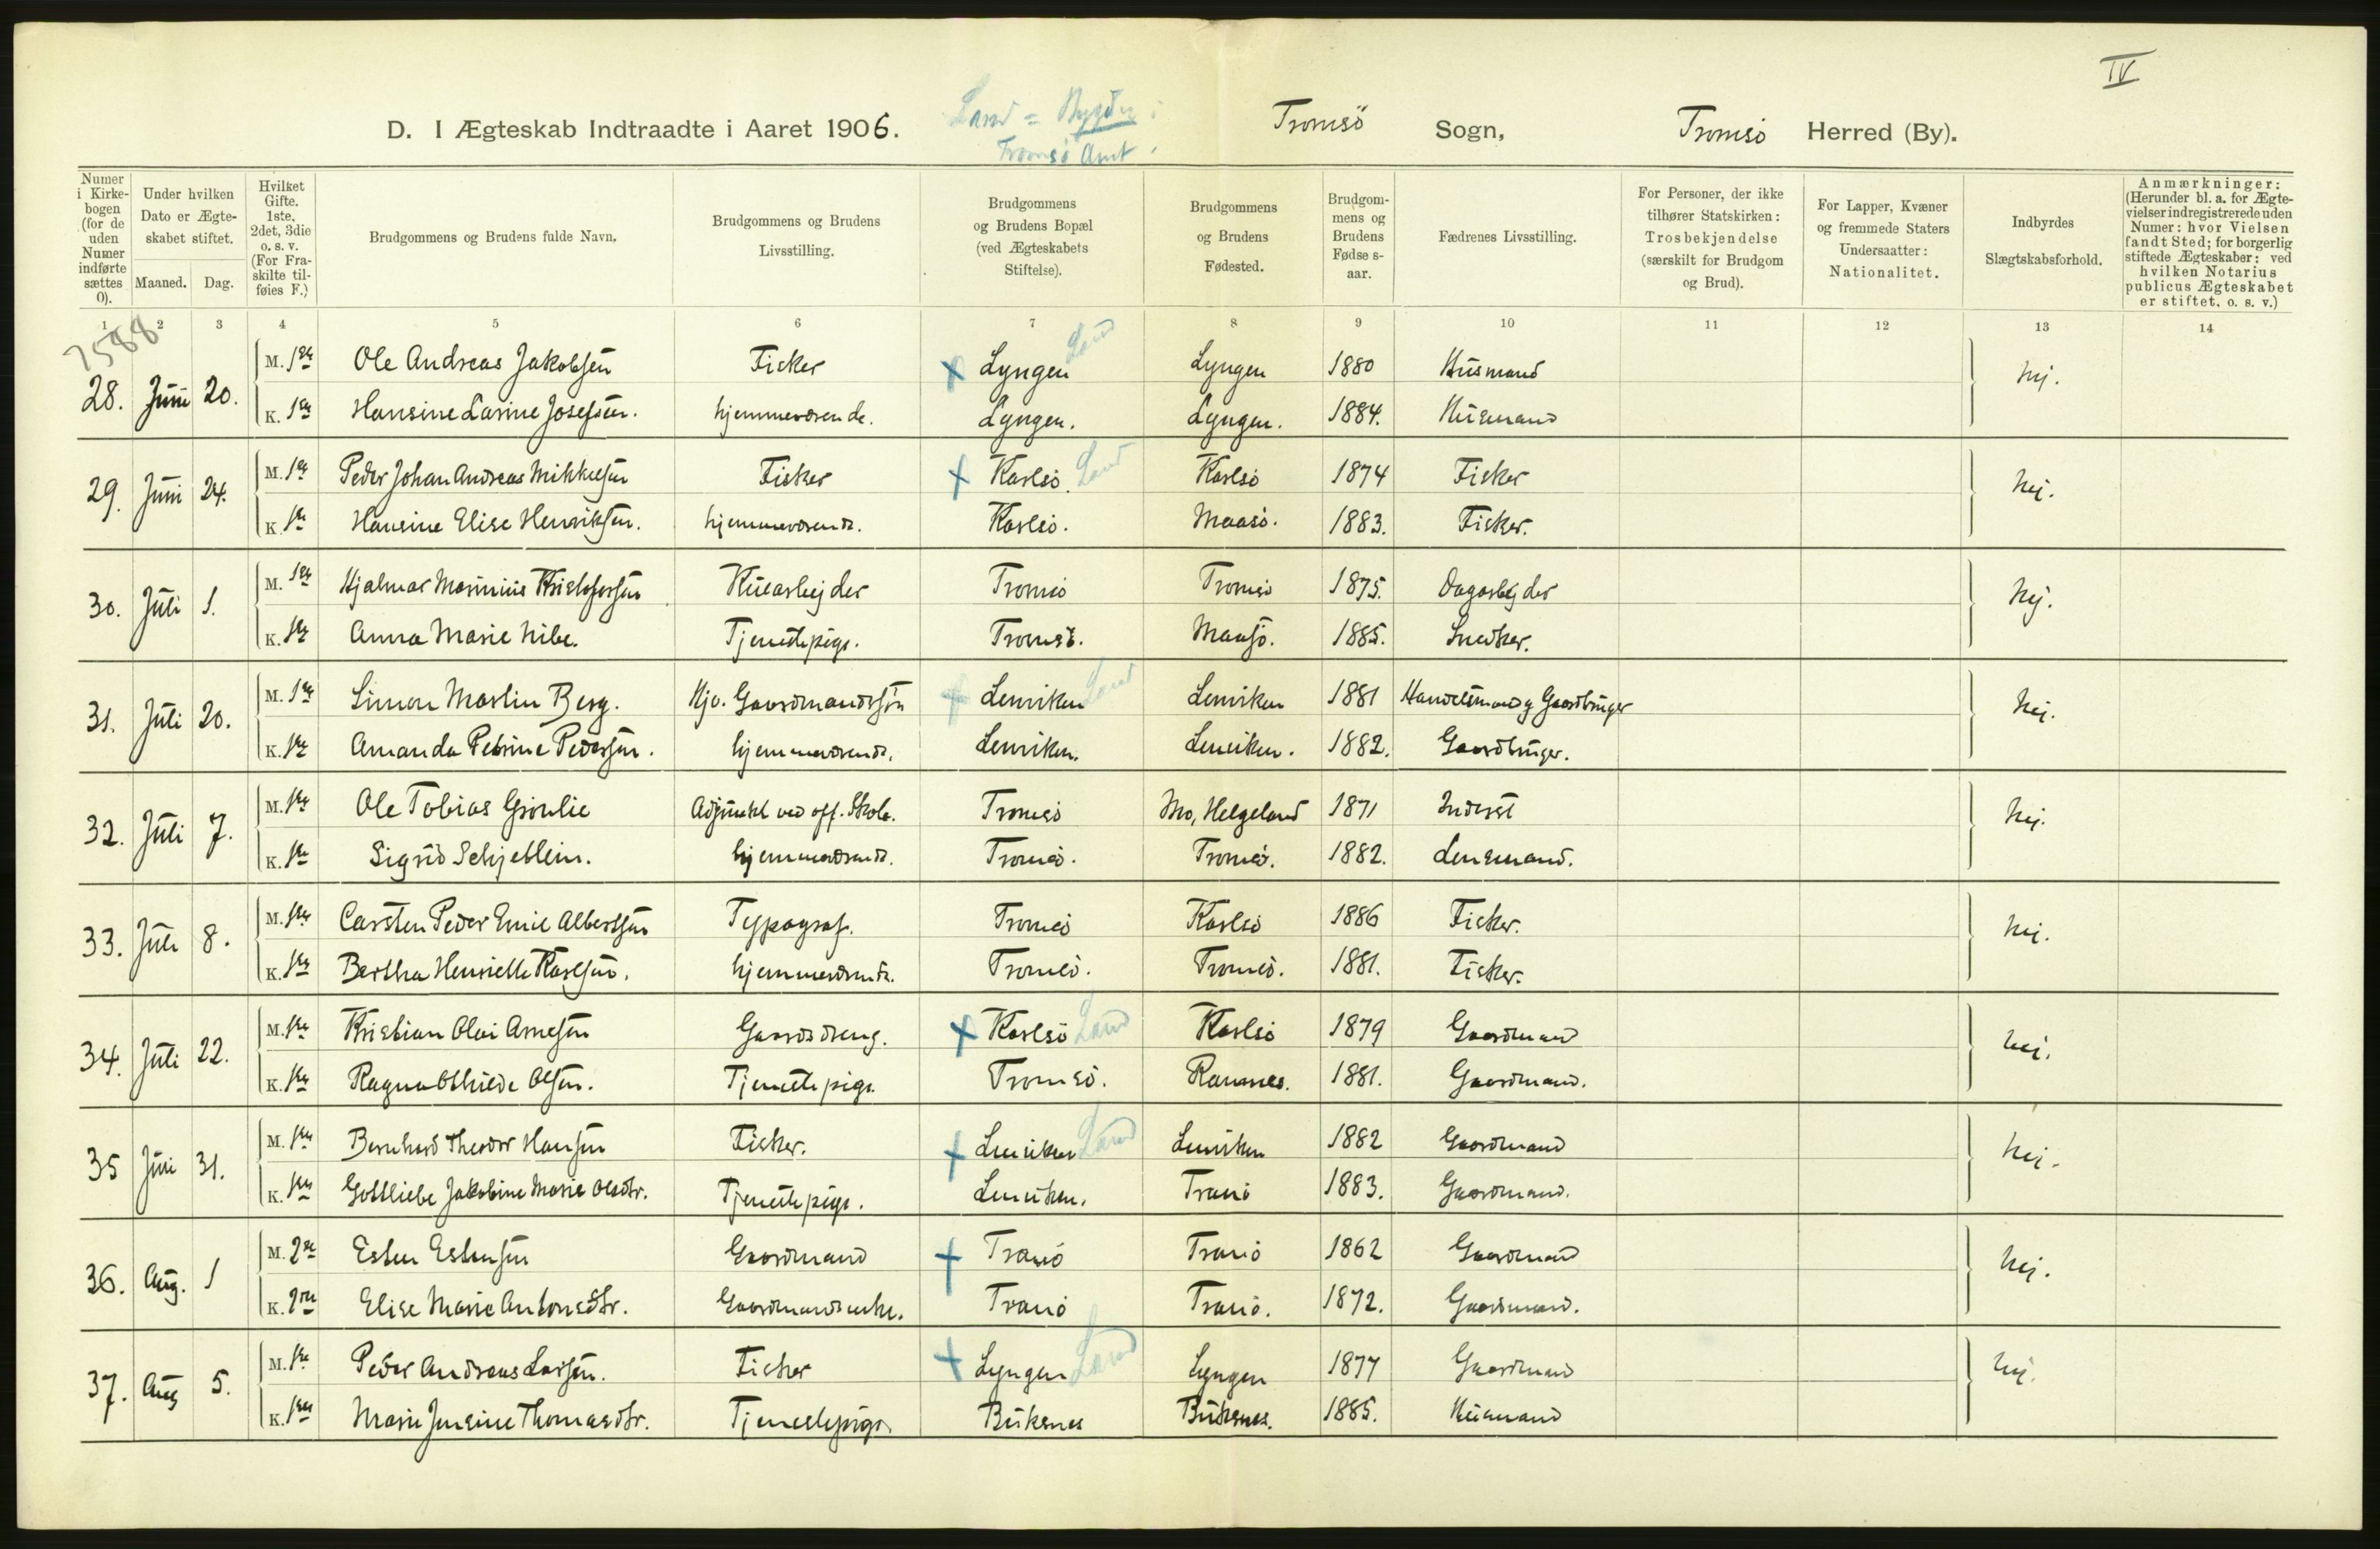 IV
D. I Ægteskab Indtraadte i Aaret 1906. Land = Bygder i Tromsö Sogn, Tromsö Herred (By).
Tromsö Amt.
Numer i Kirkebogen (for de uden Numer indførte sættes 0).
Under hvilken Dato er Ægteskabet stiftet.
Maaned. Dag.
Hvilket Gifte. 1ste, 2det, 3die o. s. v. (For Fraskilte tilføies F.)
Brudgommens og Brudens fulde Navn.
Brudgommens og Brudens Livsstilling.
Brudgommens og Brudens Bopæl (ved Ægteskabets Stiftelse).
Brudgommens og Brudens Fødested.
Brudgommens og Brudens Fødse s-aar.
Fædrenes Livsstilling.
For Personer, der ikke tilhører Statskirken: Trosbekjendelse (særskilt for Brudgom og Brud).
For Lapper, Kvæner og fremmede Staters Undersaatter: Nationalitet.
Indbyrdes Slægtskabsforhold.
Anmærkninger: (Herunder bl. a. for Ægtevielser indregistrerede uden Numer: hvor Vielsen fandt Sted; for borgerlig stiftede Ægteskaber: ved hvilken Notarius publicus Ægteskabet er stiftet, o. s. v.)
1 2 3 4 5 6 7 8 9 10 11 12 13 14
7588
28. Juni 20. M. 1ste Ole Andreas Jakobsen Fisker Lyngen Land Lyngen 1880 Husmand Nej.
K. 1ste Hansine Larine Josefsen. hjemmeværende. Lyngen. Lyngen. 1884. Husmand
29. Juni 24. M. 1ste Peder Johan Andreas Mikkelsen Fisker Karlsö. Land Karlsö 1874 Fisker Nej.
K. 1ste Hansine Elise Henriksen. hjemmeværende. Karlsö. Maasö. 1883. Fisker.
30. Juli 1. M. 1ste Hjalmar Marinius Kristofersen Tromsö Tromsö 1875. Dagarbejder Nej.
K. 1ste Anna Marie Nibe. Tjenestepige. Tromsö. Maasö. 1885. Snedker.
31. Juli 20. M. 1ste Simon Martin Berg. Hjv. Gaardmandssön Lenviken Land Lenviken 1881 Handelsmand og Gaardbruger Nej.
K. 1ste Amanda Petrine Pedersen. hjemmeværende. Lenviken. Lenviken. 1882. Gaardbruger.
32. Juli 7. M. 1ste Ole Tobias Grönlie Adjunkt ved off. Skole. Tromsö Mo, Helgeland 1871 Inderst Nej.
K. 1ste Sigrid Schjeblein. hjemmeværende. Tromsö. Tromsö. 1882. Lensmand.
33. Juli 8. M. 1ste Carsten Peder Emil Albertsen Typograf. Tromsö Karlsö 1886 Fisker. Nei.
K. 1ste Bertha Henriette Karlsen. hjemmeværende. Tromsö. Tromsö. 1881. Fisker.
34. Juli 22. M. 1ste Kristian Olai Arnesen Gaardsdreng. Karlsö Land Karlsö 1879 Gaardmand Nei.
K. 1ste Ragna Othilde Olsen. Tjenestepige. Tromsö. 1881. Gaardmand.
35 31. M. 1ste Bernhard Theodor Hansen Fisker. Lenviken Land Lenviken 1882 Gaardmand Nei.
K. 1ste Gottliebe Jakobine Marie Olsdtr. Tjenestepige. Lenviken. Tranö 1883. Gaardmand.
36. Aug. 1 M. 2de Esten Estensen Gaardmand Tranö Tranö 1862 Gaardmand Nej.
K. 2de Elise Marie Antonsdtr. Gaardmandsenke. Tranö Tranö. 1872. Gaardmand.
37. Aug 5. M. 1ste Peder Andreas Larsen. Fisker Lyngen Land Lyngen 1877 Gaardmand Nej.
K. 1ste Marie Jensine Thomasdtr. Tjenestepige. Buksnes Buksnes. 1885. Husmand